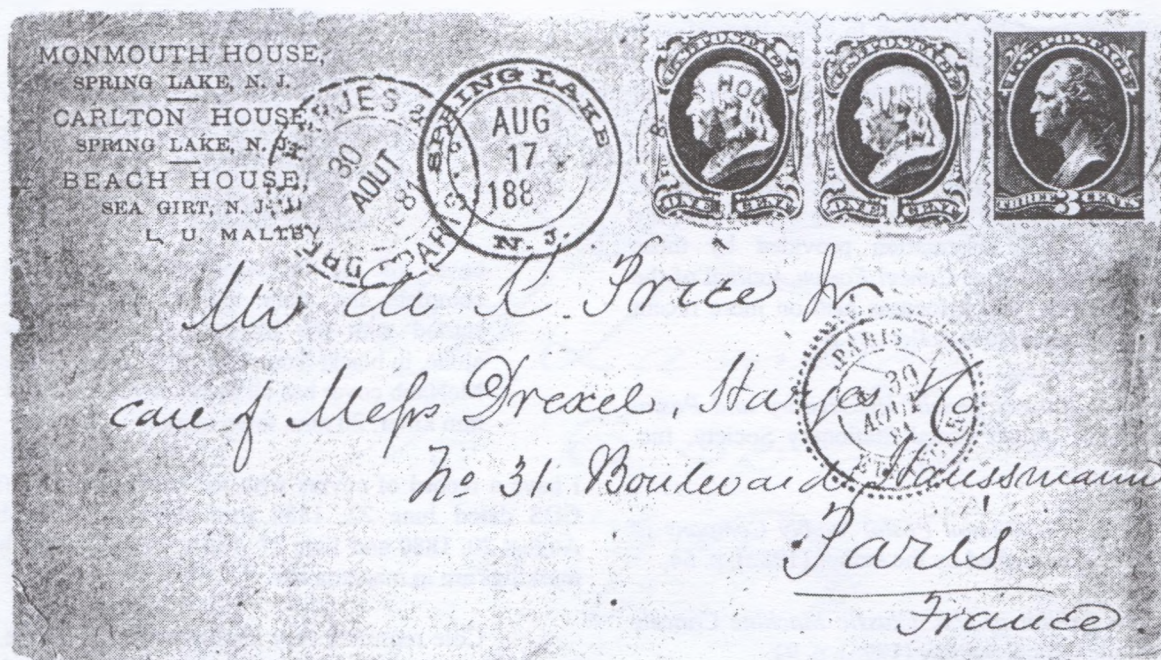 MONMOUTH HOUSE,
SPRING LAKE, N. J.
CARLTON HOUSE,
SPRING LAKE, N. J.
BEACH HOUSE,
SEA GIRT, N. J.
L. U. MALTBY
30
AOUT
81
SPRING LAKE
AUG
17
188
N. J.
U.S. POSTAGE
ONE CENT
U.S. POSTAGE
ONE CENT
U.S. POSTAGE
THREE 3 CENTS
Mr Eli K. Price Jr
care of Messrs Drexel, Harjes & Co
No 31. Boulevard Haussmann
Paris
France.
PARIS
30
AOUT
81